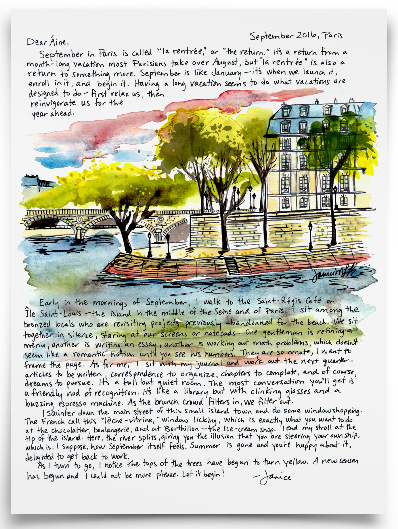 September 2016, Paris
Dear Áine,
September in Paris is called "la rentrée," or "the return." It's a return from a
month-long vacation most Parisians take over August, but "la rentrée" is also a
return to something more. September is like January—it's when we launch it,
enroll in it, and begin it. Having a long vacation seems to do what vacations are
designed to do - first relax us, then
reinvigorate us for the
year ahead.
Early in the mornings of September, I walk to the Saint-Régis Café on
Île Saint-Louis—the island in the middle of the Seine and of Paris. I sit among the
bronzed locals who are revisiting projects previously abandoned for the beach. We sit
together in silence, staring at our screens or notepads. One gentleman is refining a
menu, another is writing an essay, another is working our math problems, which doesn't
seem like a romantic notion until you see his numbers. They are so ornate, I want to
frame the page. As for me, I sit with my journal and work out the next quarter:
articles to be written, correspondence to organize, chapters to complete, and of course,
dreams to pursue. It's a full but quiet room. The most conversation you'll get is
a friendly nod of recognition. It's like a library but with clinking glasses and a
buzzing espresso machine. As the brunch crowd filters in, we filter out.
I saunter down the main street of this small island town and do some window shopping.
The French call this "lèche-vitrine," window licking, which is exactly what you want to do
at the chocolatier, boulangerie, and at Berthillon—the ice-cream shop. I end my stroll at the
tip of the island. Here, the river splits, giving you the illusion that you are steering your own ship.
which is, I suppose, how September itself feels. Summer is gone and you're happy about it,
delighted to get back to work.
As I turn to go, I notice the tops of the trees have begun to turn yellow. A new season
has begun and I could not be more pleased. Let it begin!
—Janice